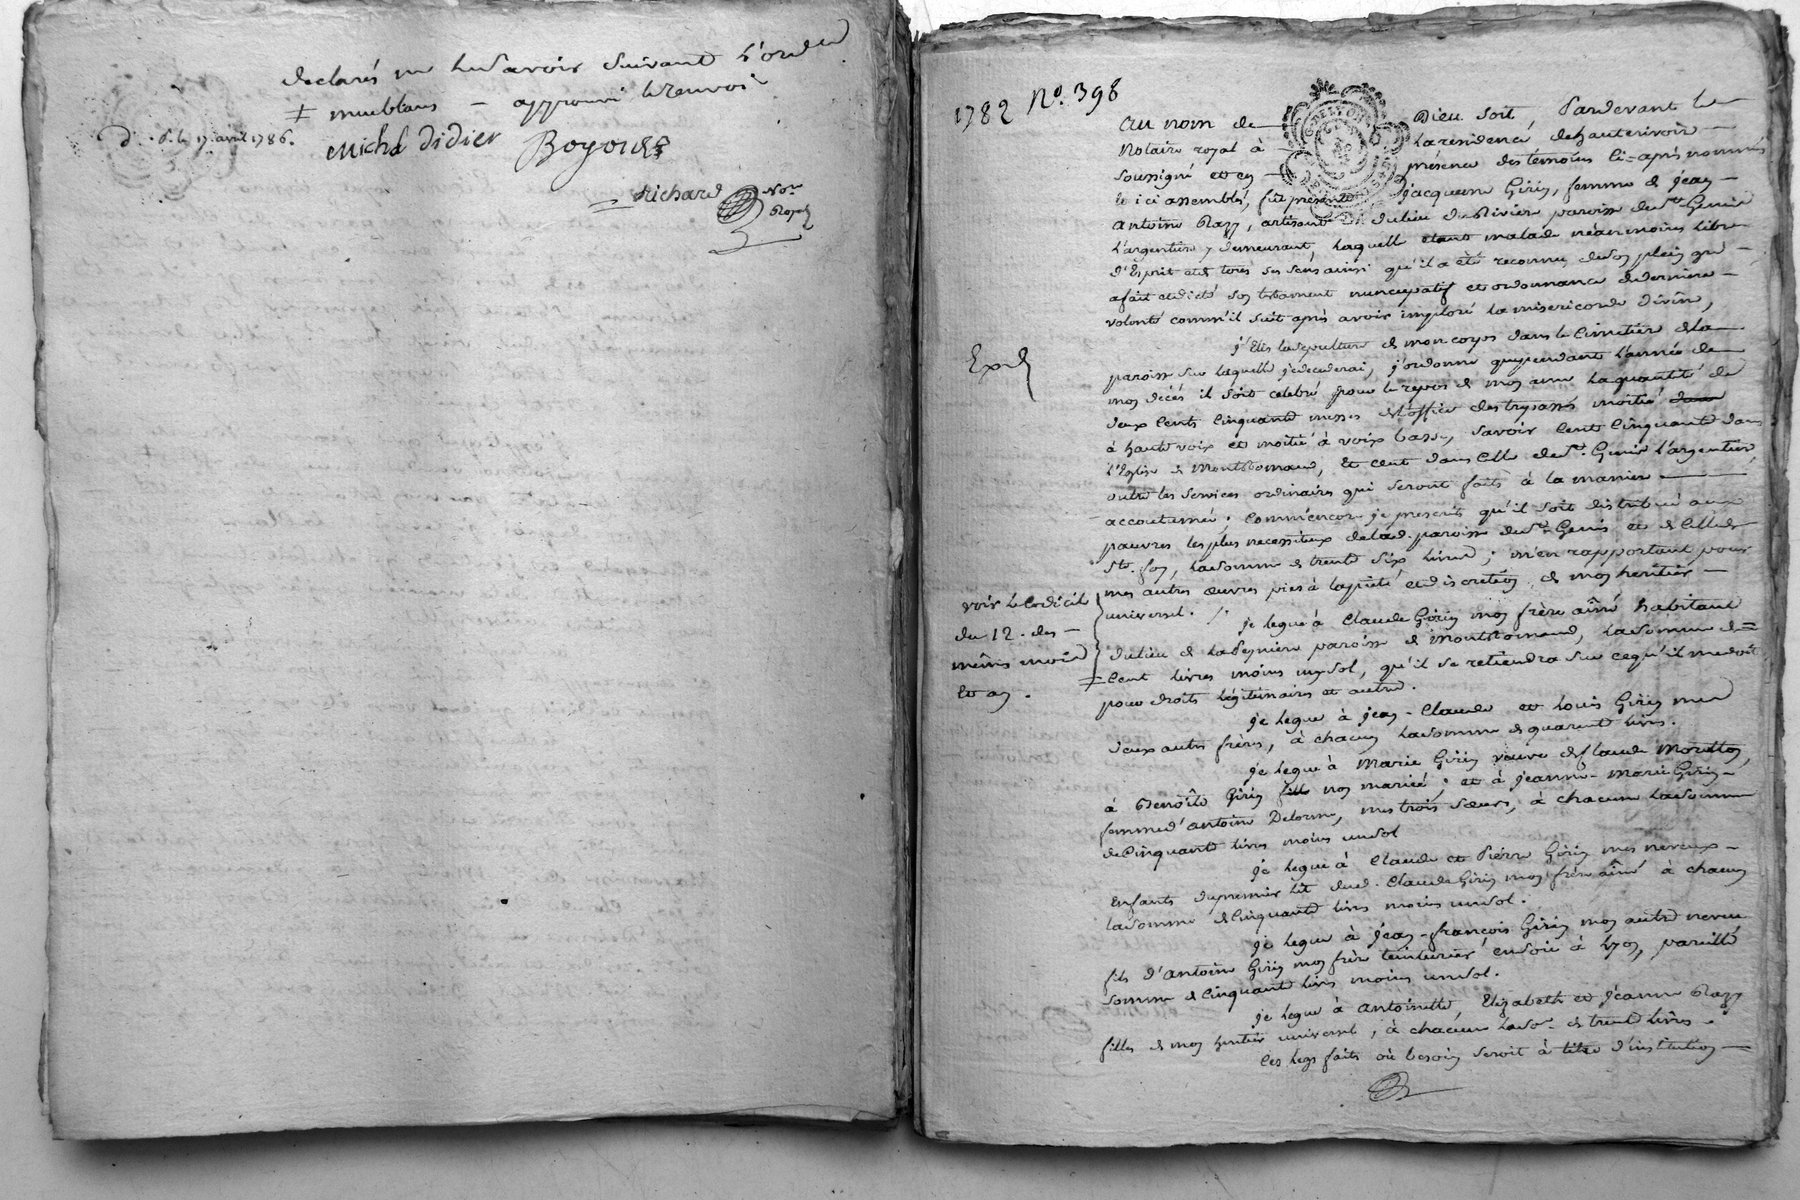 declarés ne le savoir suivant l'ord.
‡ meublans – approuvé le renvoi
d. . d. le 17. avril 1786.
Miche Didier Boyoud
Richard Nore
Royal
1782 N°. 398
Au nom de Dieu soit, Pardevant le
Notaire royal à la residence de hauterivoir
soussigné et en présence des témoins ci-après nommés
et ici assemblés, fût présente jacqueme Girin, femme de jean
antoine Razy, artisant du lieu du Rivier paroisse de St Genis
L'argentier y demeurant, laquelle etant malade néanmoins libre
d'Esprit et de tous ses sens ainsi qu'il a été reconnu, de son plein gré
a fait et dicté son testament nuncupatif et ordonnance de derniere
volonté comm'il suit après avoir imploré la misericorde divine,
j'Elis la sepulture de mon corps dans le Cimetier de la
paroisse sur laquelle je decederai, j'ordonne que pendant l'année de
mon décés il soit celebré pour le repos de mon ame la quantité de
deux Cents Cinquante messes de l'office des trepassés moitié
à haute voix et moitié à voix basse, savoir Cent Cinquante dans
l'Eglise de Montromand, Et cent dans Celle de St. Genis l'argentier,
outre les Services ordinaires qui seront faits à la maniere
accoutumée. Comm'encor je prescrits qu'il soit distribué aux
pauvres les plus necessiteux de lad. paroisse de St. Genis et de Celle de
Ste. foy, la somme de trente Six livres; m'en rapportant pour
mes autres œuvres pies à la pieté et discretion de mon heritier
universel.
Exp.d
voir le Codicile
du 12. des
mêmes mois
Et an.
je legue à Claude Girin mon frère aîné habitant
du lieu de la Peyniere paroisse de Montromand, la somme de
Cent livres moins un sol, qu'il se retiendra sur ce qu'il me doit
pour droits légitimaires et autres.
je legue à jean-Claude et Louis Girin mes
deux autres frères, à chacun la somme de quarente livres.
je legue à Marie Girin veuve de Claude Morillon,
à Benoîte Girin fille non mariée; et à jeanne-Marie Girin
femme d'antoine Delorme, mes trois sœurs, à chacune la somme
de Cinquante livres moins un sol
je legue à Claude et Pierre Girin mes neveux
Enfants du premier lit dud. Claude Girin mon frère aîné à chacun
la somme de Cinquante livres moins un sol.
je legue à jean-françois Girin mon autre neveu
fils d'antoine Girin mon frère teinturier en soie à Lyon, pareille
somme de Cinquante livres moins un sol.
je legue à antoinette, Elizabeth et jeanne Razy
filles de mon heritier universel, à chacune la so. de trente livres.
Ces legs faits où besoin seroit à titre d'institution